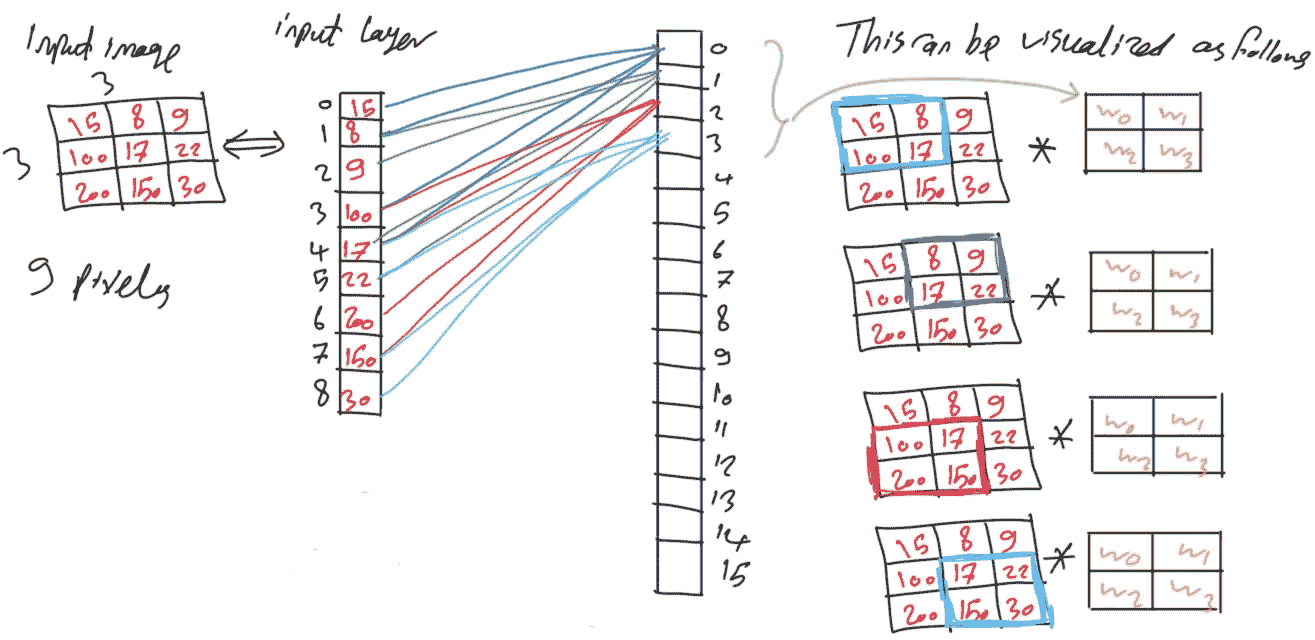 Input image
3
3
15 8 9
100 17 22
200 150 30
9 pixels
input layer
0 15
1 8
2 9
3 100
4 17
5 22
6 200
7 150
8 30
0
1
2
3
4
5
6
7
8
9
10
11
12
13
14
15
This can be visualized as follows
15 8 9
100 17 22
200 150 30
*
w0 w1
w2 w3
15 8 9
100 17 22
200 150 30
*
w0 w1
w2 w3
15 8 9
100 17 22
200 150 30
*
w0 w1
w2 w3
15 8 9
100 17 22
200 150 30
*
w0 w1
w2 w3